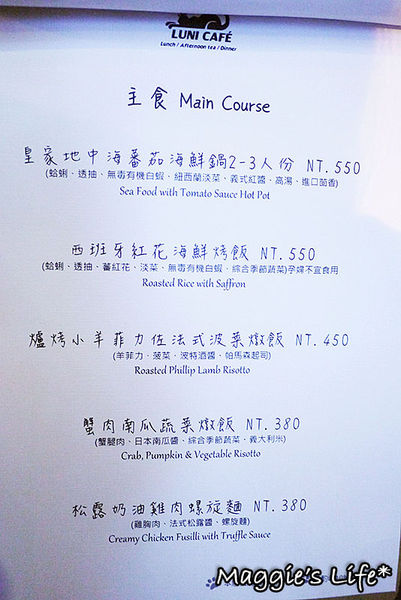 LUNI CAFÉ
Lunch / Afternoon tea / Dinner
主食 Main Course
皇家地中海蕃茄海鮮鍋2-3人份 NT.550
(蛤蜊、透抽、無毒有機白蝦、紐西蘭淡菜、義式紅醬、高湯、進口茴香)
Sea Food with Tomato Sauce Hot Pot
西班牙紅花海鮮烤飯 NT.550
(蛤蜊、透抽、蕃紅花、淡菜、無毒有機白蝦、綜合季節蔬菜)孕婦不宜食用
Roasted Rice with Saffron
爐烤小羊菲力佐法式波菜燉飯 NT.450
(羊菲力、菠菜、波特酒醬、帕馬森起司)
Roasted Phillip Lamb Risotto
蟹肉南瓜蔬菜燉飯 NT.380
(蟹腿肉、日本南瓜醬、綜合季節蔬菜、義大利米)
Crab, Pumpkin & Vegetable Risotto
松露奶油雞肉螺旋麵 NT.380
(雞胸肉、法式松露醬、螺旋麵)
Creamy Chicken Fusilli with Truffle Sauce
Maggie's Life*